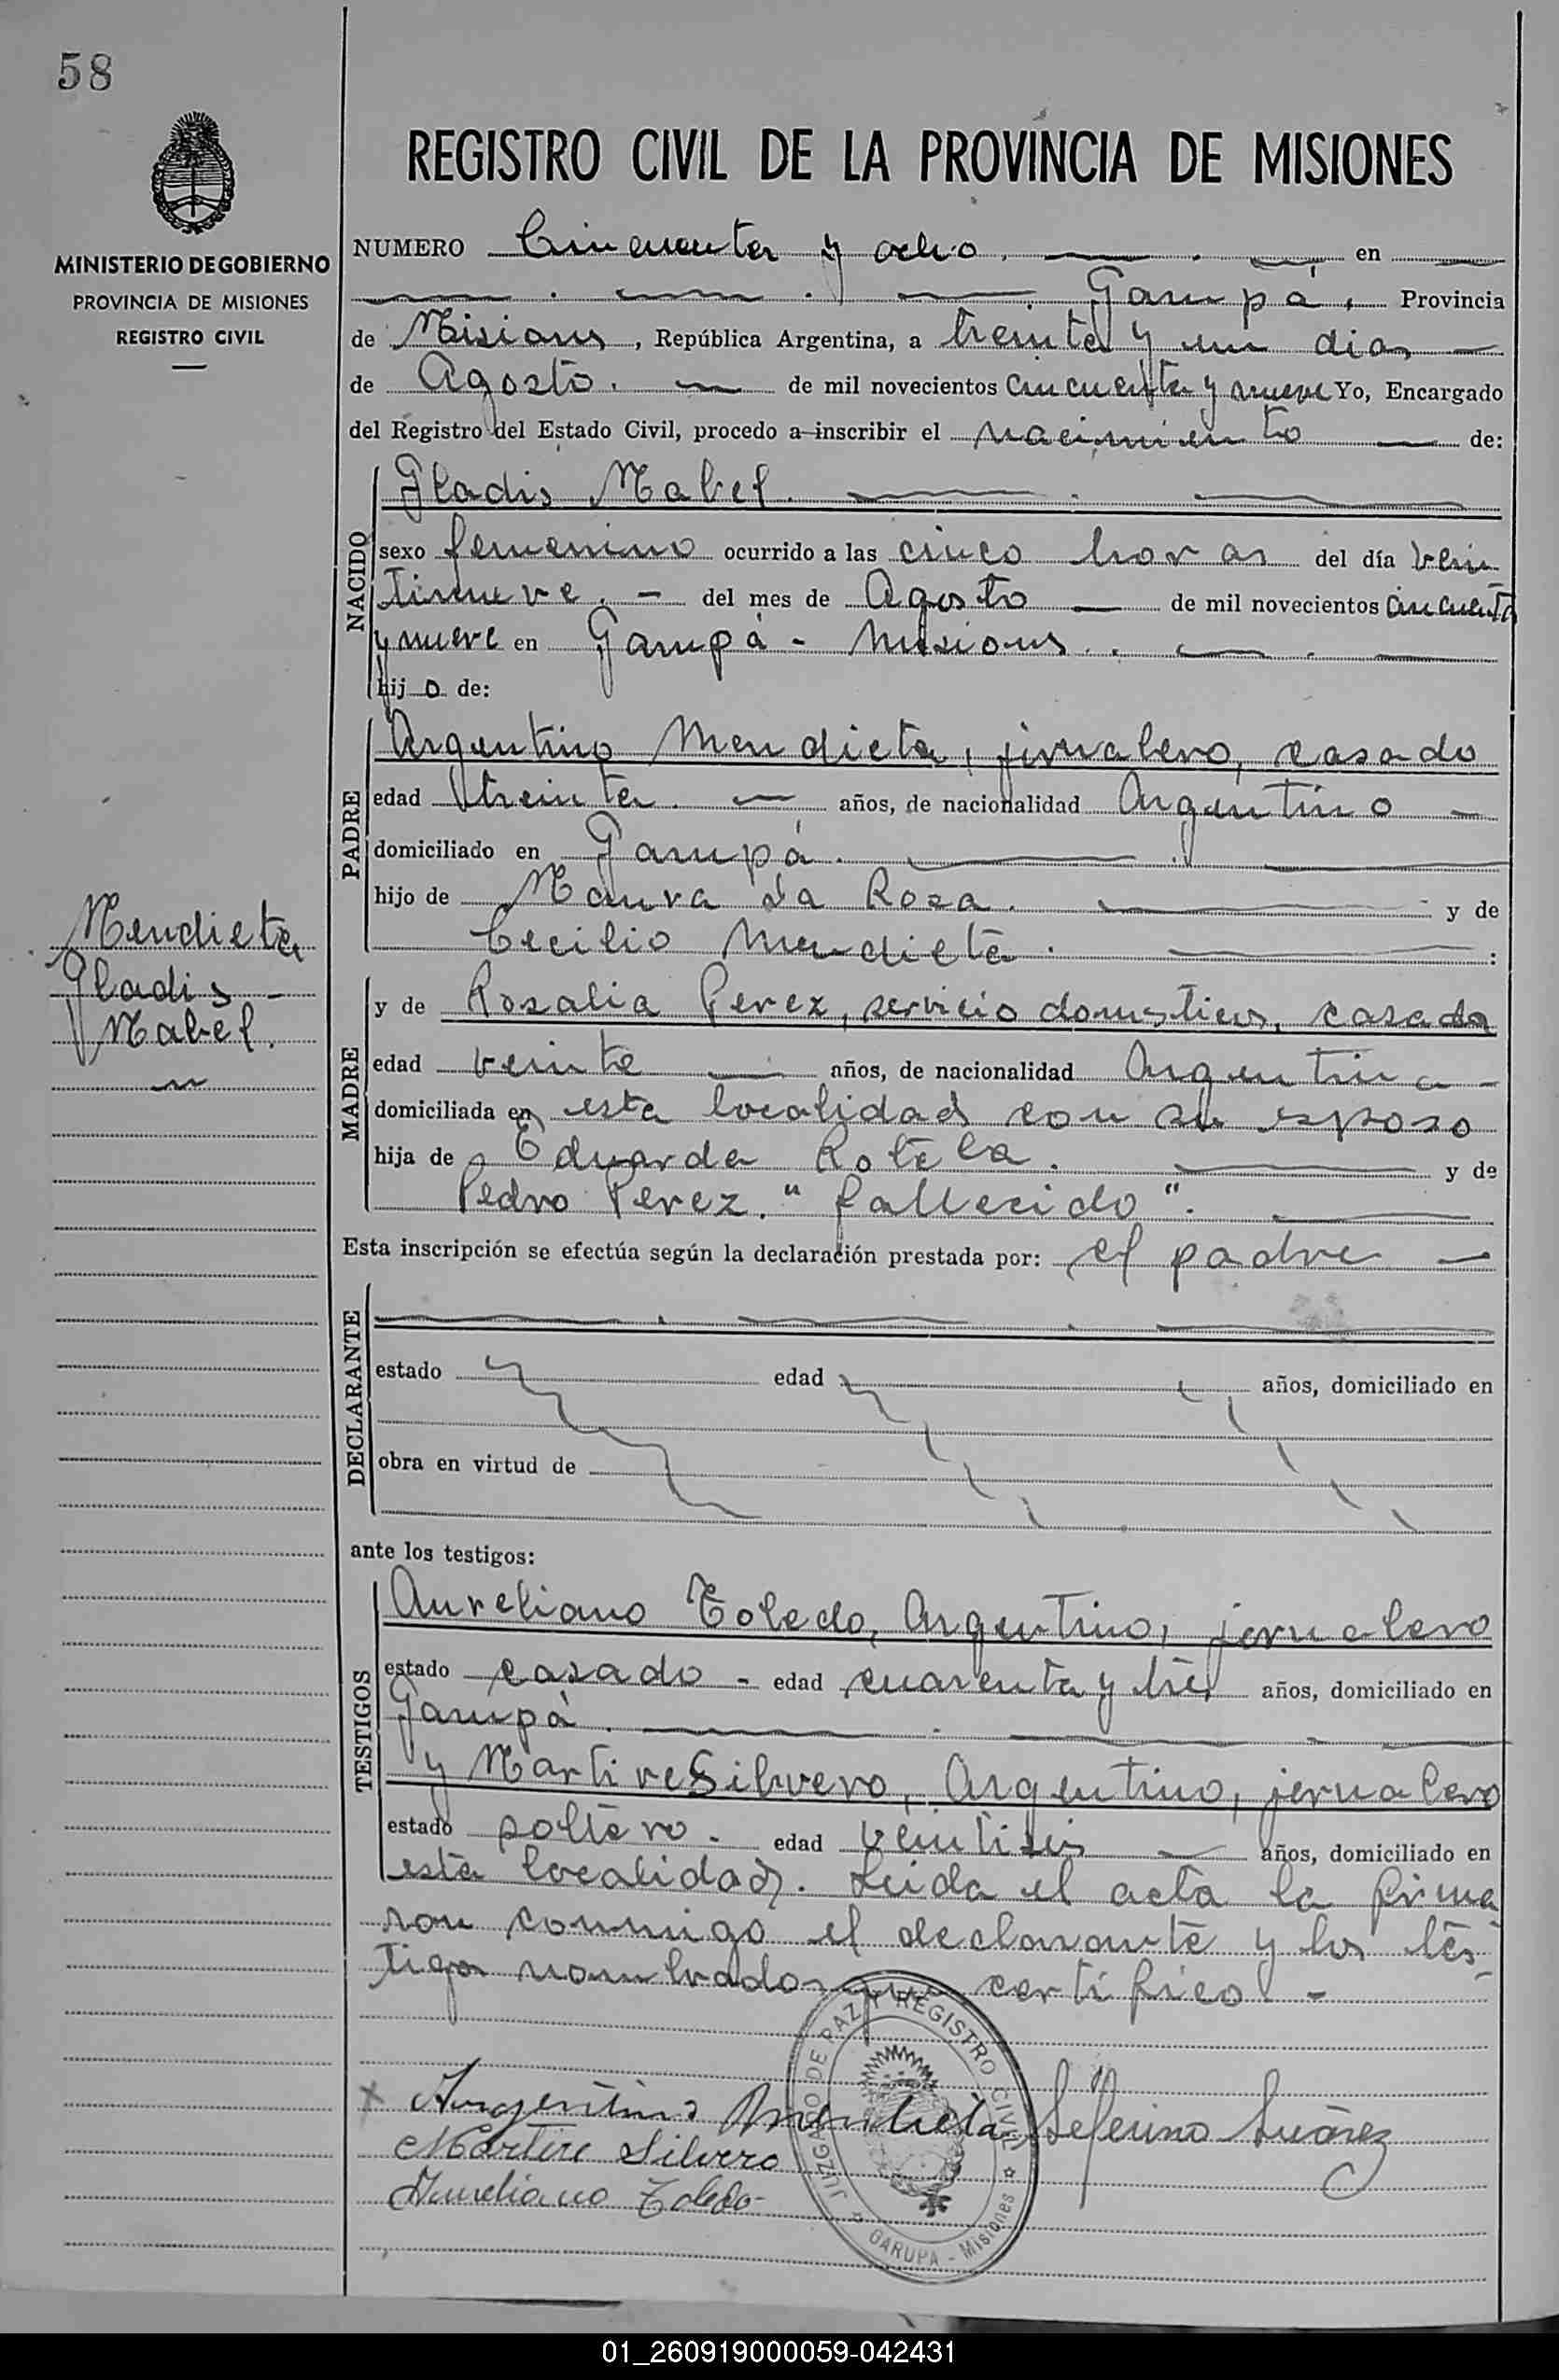 58
REGISTRO CIVIL DE LA PROVINCIA DE MISIONES
MINISTERIO DE GOBIERNO
PROVINCIA DE MISIONES
REGISTRO CIVIL
NUMERO Cincuenta y ocho. en
Garupá, Provincia
de Misiones, República Argentina, a treinta y un dias
de Agosto. de mil novecientos cincuenta y nueve Yo, Encargado
del Registro del Estado Civil, procedo a inscribir el nacimiento de:
NACIDO
Gladis Mabel.
sexo femenino ocurrido a las cinco horas del día vein
tinueve. - del mes de Agosto de mil novecientos cincuenta
y nueve en Garupá - Misiones.
hijo de:
PADRE
Argentino Mendieta, jornalero, casado
edad treinta. años, de nacionalidad Argentino
domiciliado en Garupá.
hijo de Maura Da Rosa. y de
Cecilio Mendieta. :
Mendieta
Gladis -
Mabel.
MADRE
y de Rosalia Perez, servicio domesticos, casada
edad veinte años, de nacionalidad Argentina -
domiciliada en esta localidad con su esposo
hija de Eduarda Rotela. y de
Pedro Perez. "fallecido".
Esta inscripción se efectúa según la declaración prestada por: el padre
DECLARANTE
estado edad años, domiciliado en
obra en virtud de
ante los testigos:
TESTIGOS
Aureliano Toledo, Argentino, jornalero
estado casado - edad cuarenta y tres años, domiciliado en
Garupá.
y Martire Silvero, Argentino, jornalero
estado soltero. edad veintiseis años, domiciliado en
esta localidad. Leida el acta la firma
ron conmigo el declarante y los tes-
tigos nombrados que certifico. -
JUZGADO DE PAZ Y REGISTRO CIVIL
GARUPA - Misiones
x Argentino Mendieta Seferino Suárez
Martire Silvero
Aureliano Toledo-
01_260919000059-042431